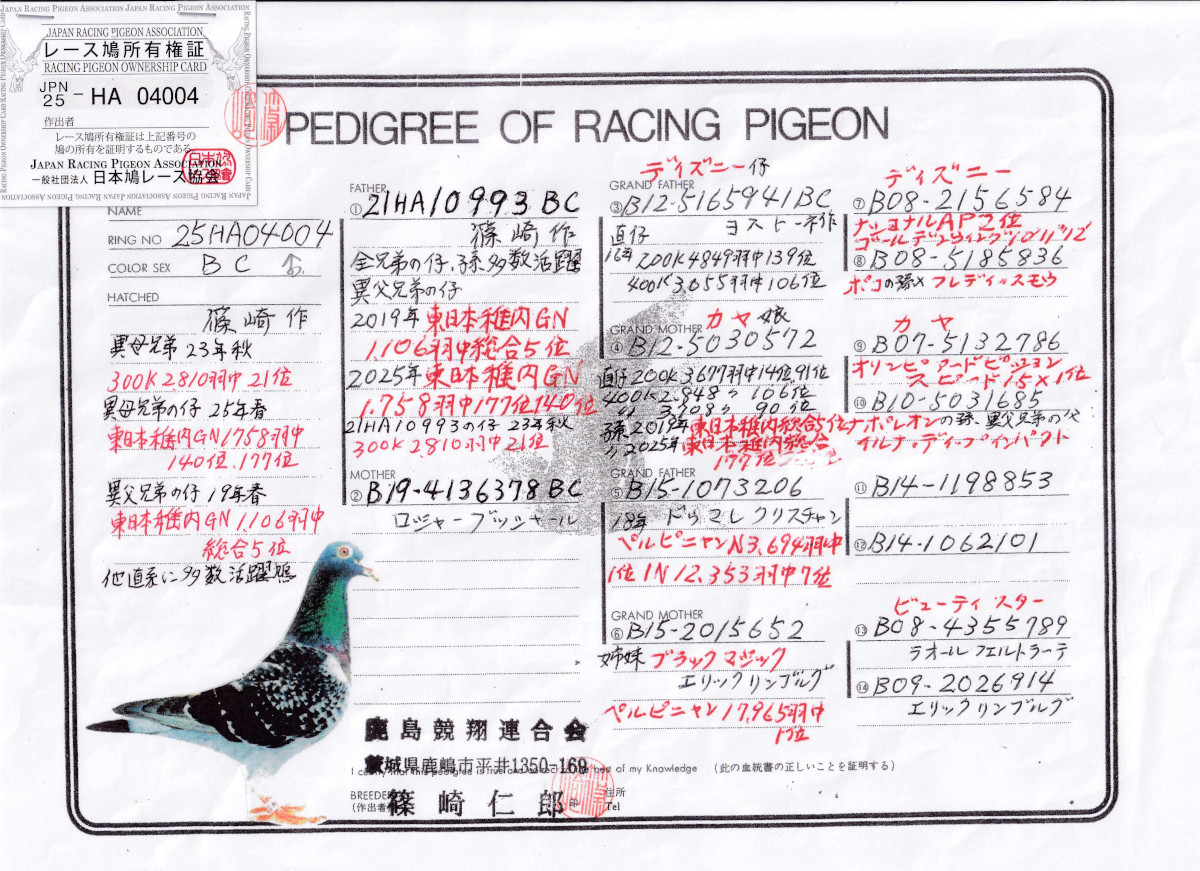 JAPAN RACING PIGEON ASSOCIATION JAPAN RACING PIGEON ASSOCIATION
JAPAN RACING PIGEON ASSOCIATION
レース鳩所有権証
RACING PIGEON OWNERSHIP CARD
JPN
25 - HA 04004
作出者
レース鳩所有権証は上記番号の
鳩の所有を証明するものである。
JAPAN RACING PIGEON ASSOCIATION
一般社団法人 日本鳩レース協会
PEDIGREE OF RACING PIGEON
NAME
RING NO 25HA04004
COLOR SEX BC
HATCHED
篠崎作
異母兄弟 23年秋
300K 2810羽中 21位
異母兄弟の仔 25年春
東日本稚内GN1758羽中
140位、177位
異父兄弟の仔 19年春
東日本稚内GN 1,106羽中
総合5位
他直系に多数活躍鳩
FATHER
① 21HA10993 BC
篠崎作
全兄弟の仔、孫多数活躍
異父兄弟の仔
2019年 東日本稚内GN
1,106羽中総合5位
2025年 東日本稚内GN
1,758羽中177位140位
21HA10993の仔 23年秋
300K 2810羽中 21位
MOTHER
② B19-4136378 BC
ロジャーブッジャール
ディズニー仔
GRAND FATHER
③ B12-5165941BC
ヨストーネ作
直仔
16年 200K4849羽中139位
400K3,055羽中106位
GRAND MOTHER カヤ娘
④ B12-5030572
直仔200K3677羽中14位,91位
400K2,848 〃 106位
〃 3,708 〃 90位
孫、2019年東日本稚内総合5位
〃 2025年東日本稚内総合
177位
GRAND FATHER
⑤ B15-1073206
18年 ドゥマレクリスチャン
ペルピニャンN3,694羽中
1位 IN 12,353羽中7位
GRAND MOTHER
⑥ B15-2015652
姉妹 ブラックマジック
エリックリンブルグ
ペルピニャン17,965羽中
1位
ディズニー
⑦ B08-2156584
ナショナルAP2位
⑧ B08-5185836
ポコの孫×フレディ×スモウ
カヤ
⑨ B07-5132786
オリンピアードピジョン
スピード15×1位
⑩ B10-5031685
ナポレオンの孫、異父兄弟の父
イルナ・ディープインパクト
⑪ B14-1198853
⑫ B14-1062101
ビューティスター
⑬ B08-4355789
ラオールフェルトラーテ
⑭ B09-2026914
エリックリンブルグ
鹿島競翔連合会
茨城県鹿嶋市平井1350-169
I certify that this pedigree is true and correct to the best of my Knowledge (此の血統書の正しいことを証明する)
BREEDER
(作出者) 篠崎仁郎
住所
Tel